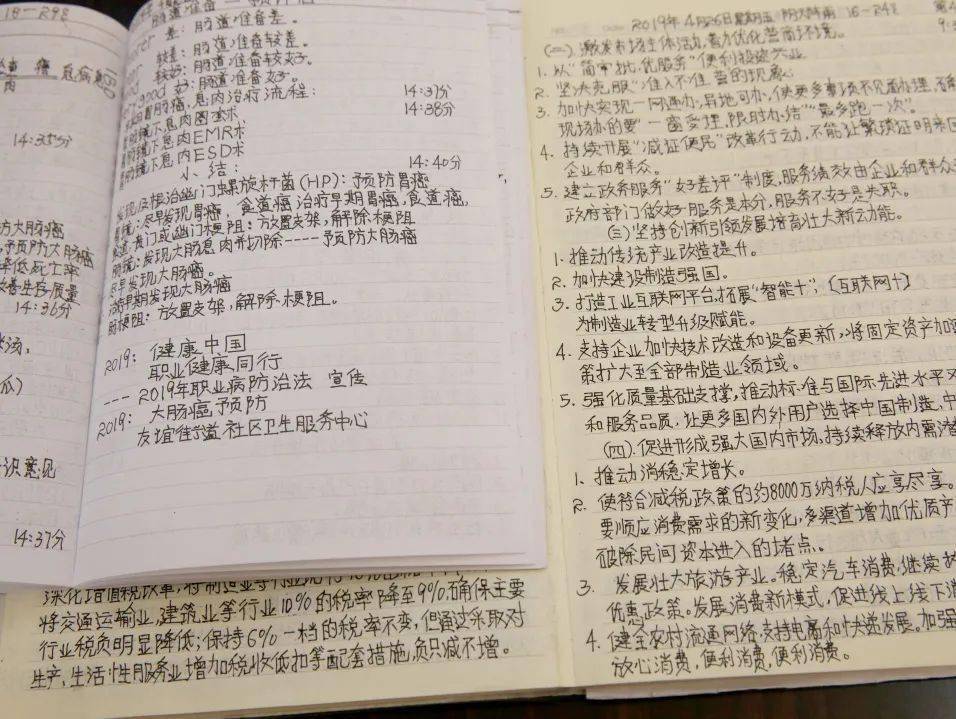 18-24℃
14:35分
防大肠癌
,预防大肠癌
降低死亡率
改善生存质量
14:36分
识意见
14:37分
差:肠道准备差。
较差:肠道准备较差。
较好:肠道准备较好。
good 好:肠道准备好。
胃肠癌,息肉治疗流程: 14:37分
镜下息肉圈套术 14:38分
镜下息肉EMR术
镜下息内ESD术
小结: 14:40分
发现及根治幽门螺旋杆菌(HP):预防胃癌
胃镜:尽早发现胃癌,食道癌治疗早期胃癌,食道癌,
贲门或幽门梗阻:放置支架,解除梗阻
肠镜:发现大肠息肉并切除----预防大肠癌
尽早发现大肠癌。
早期发现大肠癌
肠梗阻:放置支架,解除梗阻。
2019:健康中国
职业健康同行
---2019年职业病防治法 宣传
2019:大肠癌预防
友谊街道社区卫生服务中心
深化增值税改革,将制造业等行业现行16%
将交通运输业,建筑业等行业10%的税率降至9%.确保主要
行业税负明显降低;保持6%一档的税率不变,但通过采取对
生产,生活性服务业增加税收低扣等配套措施,负只减不增。
2019年4月26日星期五 阴天阵雨 16-24℃
(二)激发市场主体活力,着力优化营商环境。
1. 以"简审批,优服务"便利投资兴业.
2. 坚决克服"准入不准营的现象.
3. 加快实现一网通办,异地可办,使更多事项不见面办理,
现场办的要"一窗受理,限时办结""最多跑一次"。
4. 持续开展"减证便民"改革行动,不能让繁琐证明来
企业和群众。
5. 建立政务服务"好差评"制度,服务绩效由企业和群众
政府部门做好服务是本分,服务不好是失职。
(三)坚持创新引领发展培育壮大新动能。
1. 推动传统产业改造提升。
2. 加快建设制造强国。
3. 打造工业互联网平台,拓展"智能十",(互联网十)
为制造业转型升级赋能。
4. 支持企业加快技术改造和设备更新,将固定资产加
策扩大至全部制造业领域。
5. 强化质量基础支撑,推动标准与国际先进水平
和服务品质,让更多国内外用户选择中国制造,中
(四).促进形成强大国内市场,持续释放内需潜
1、推动消稳定增长。
2. 使符合减税政策的约8000万纳税人应享尽享。
要顺应消费需求的新变化,多渠道增加优质产
破除民间资本进入的堵点。
3. 发展壮大旅游产业。稳定汽车消费,继续
优惠政策。发展消费新模式,促进线上线下
4. 健全农村流通网络,支持电商和快递发展。加强
放心消费,便利消费,便利消费。